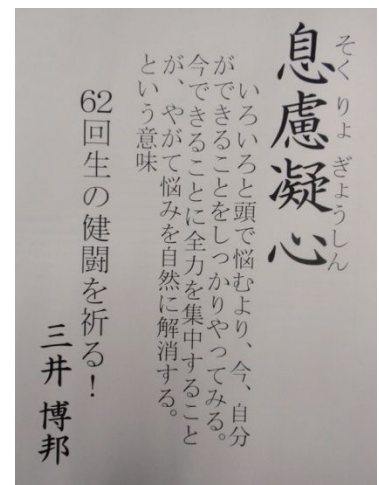 そくりょぎょうしん
息慮凝心
いろいろと頭で悩むより、今、自分
ができることをしっかりやってみる。
今できることに全力を集中すること
が、やがて悩みを自然に解消する。
という意味
62回生の健闘を祈る！
三井博邦